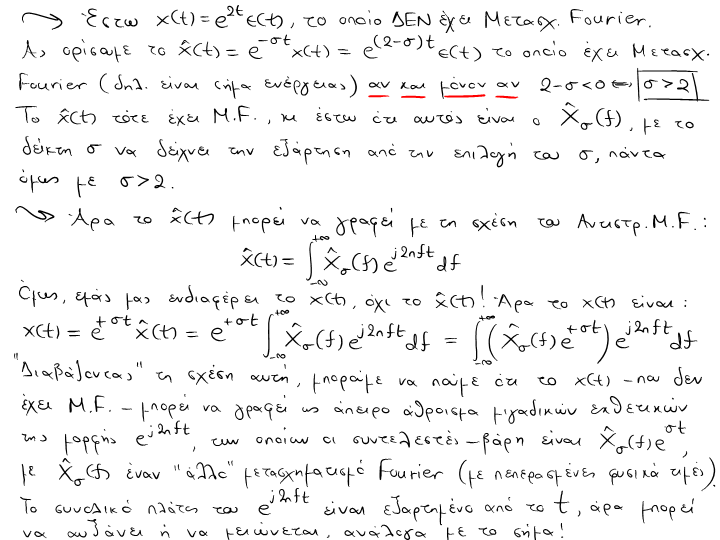 ⤳ Έστω x(t) = e^{2t}ε(t), το οποίο ΔΕΝ έχει Μετασχ. Fourier.
Ας ορίσουμε το x̂(t) = e^{-σt}x(t) = e^{(2-σ)t}ε(t) το οποίο έχει Μετασχ.
Fourier (δηλ. είναι σήμα ενέργειας) αν και μόνον αν 2-σ<0 ⇐ σ>2
Το x̂(t) τότε έχει Μ.F., κι έστω ότι αυτός είναι ο X̂_σ(f), με το
δείκτη σ να δείχνει την εξάρτηση από την επιλογή του σ, πάντα
όμως με σ>2.
⤳ Άρα το x̂(t) μπορεί να γραφεί με τη σχέση του Αντιστρ. Μ.F.:
x̂(t) = ∫_{-∞}^{+∞} X̂_σ(f) e^{j2πft} df
Όμως, εμάς μας ενδιαφέρει το x(t), όχι το x̂(t)! Άρα το x(t) είναι:
x(t) = e^{+σt} x̂(t) = e^{+σt} ∫_{-∞}^{+∞} X̂_σ(f) e^{j2πft} df = ∫_{-∞}^{+∞} (X̂_σ(f) e^{+σt}) e^{j2πft} df
"Διαβάζοντας" τη σχέση αυτή, μπορούμε να πούμε ότι το x(t) – που δεν
έχει Μ.F. – μπορεί να γραφεί ως άπειρο άθροισμα μιγαδικών εκθετικών
της μορφής e^{j2πft}, των οποίων οι συντελεστές – βάρη είναι X̂_σ(f)e^{σt},
με X̂_σ(f) έναν "άλλο" μετασχηματισμό Fourier (με πεπερασμένες φυσικά τιμές).
Το συνολικό πλάτος του e^{j2πft} είναι εξαρτημένο από το t, άρα μπορεί
να αυξάνει ή να μειώνεται, ανάλογα με το σήμα!